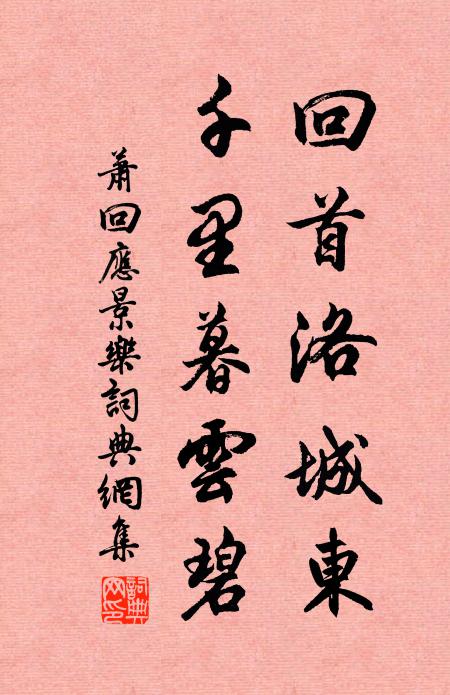 回首洛城東
千里暮雲碧
蕭回應景樂詞典網集
詞典網印